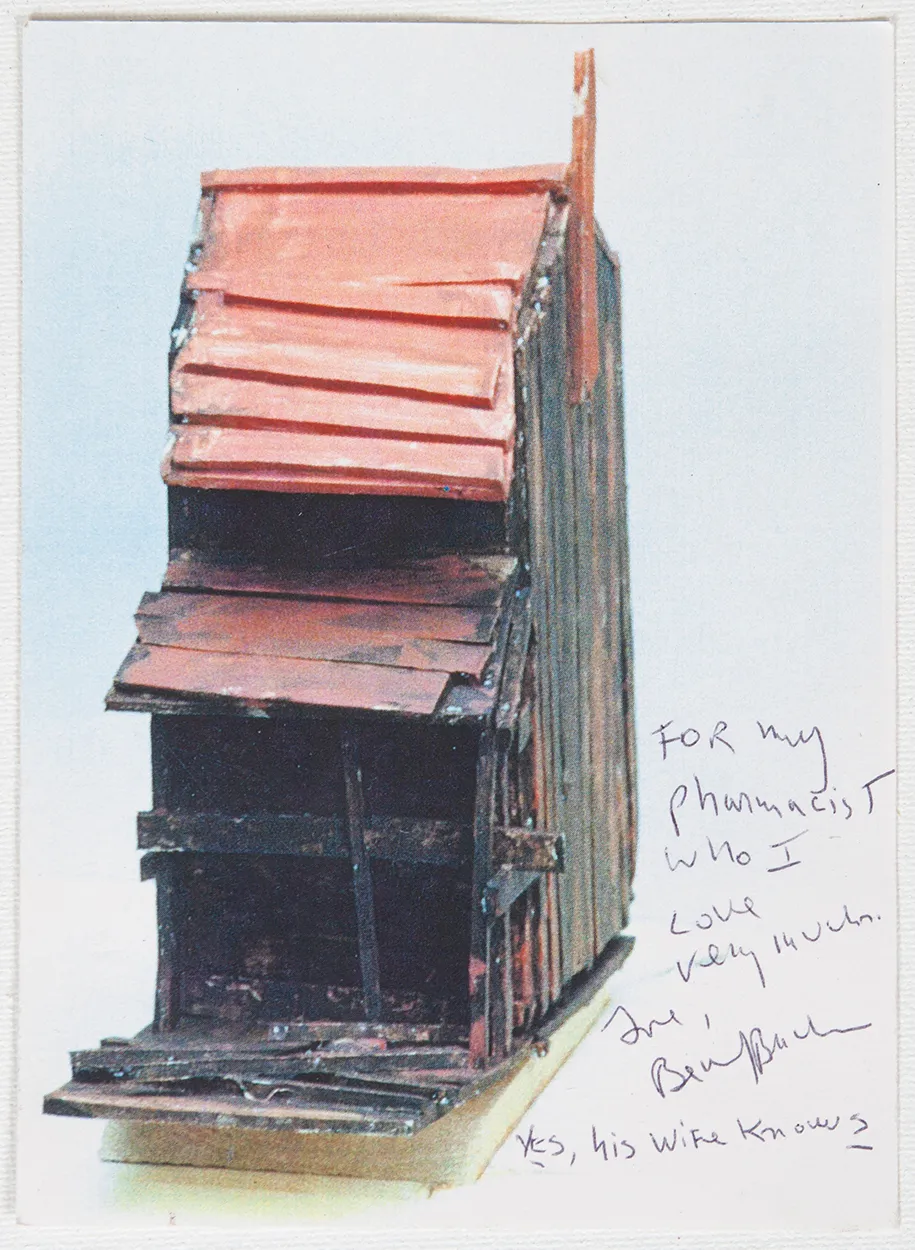 FOR my
pharmacist
who I
Love
very much.
Love,
Bev Buch
Yes, his wife knows